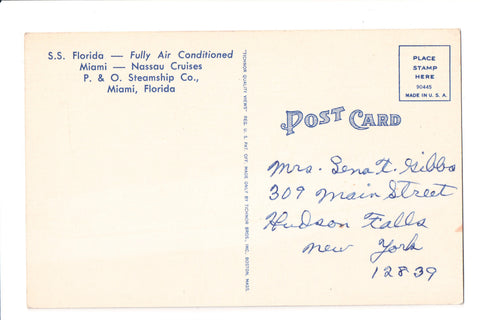 S.S. Florida — Fully Air Conditioned
Miami — Nassau Cruises
P. & O. Steamship Co.,
Miami, Florida
"TICHNOR QUALITY VIEWS" REG. U. S. PAT. OFF. MADE ONLY BY TICHNOR BROS., INC., BOSTON, MASS.
PLACE
STAMP
HERE
90445
MADE IN U. S. A.
POST CARD
Mrs. Lena T. Gibbs
309 Main Street
Hudson Falls
New York
12839